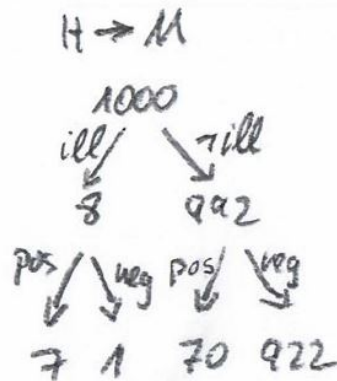 H → M
1000
ill ¬ill
8 992
pos neg pos neg
7 1 70 922